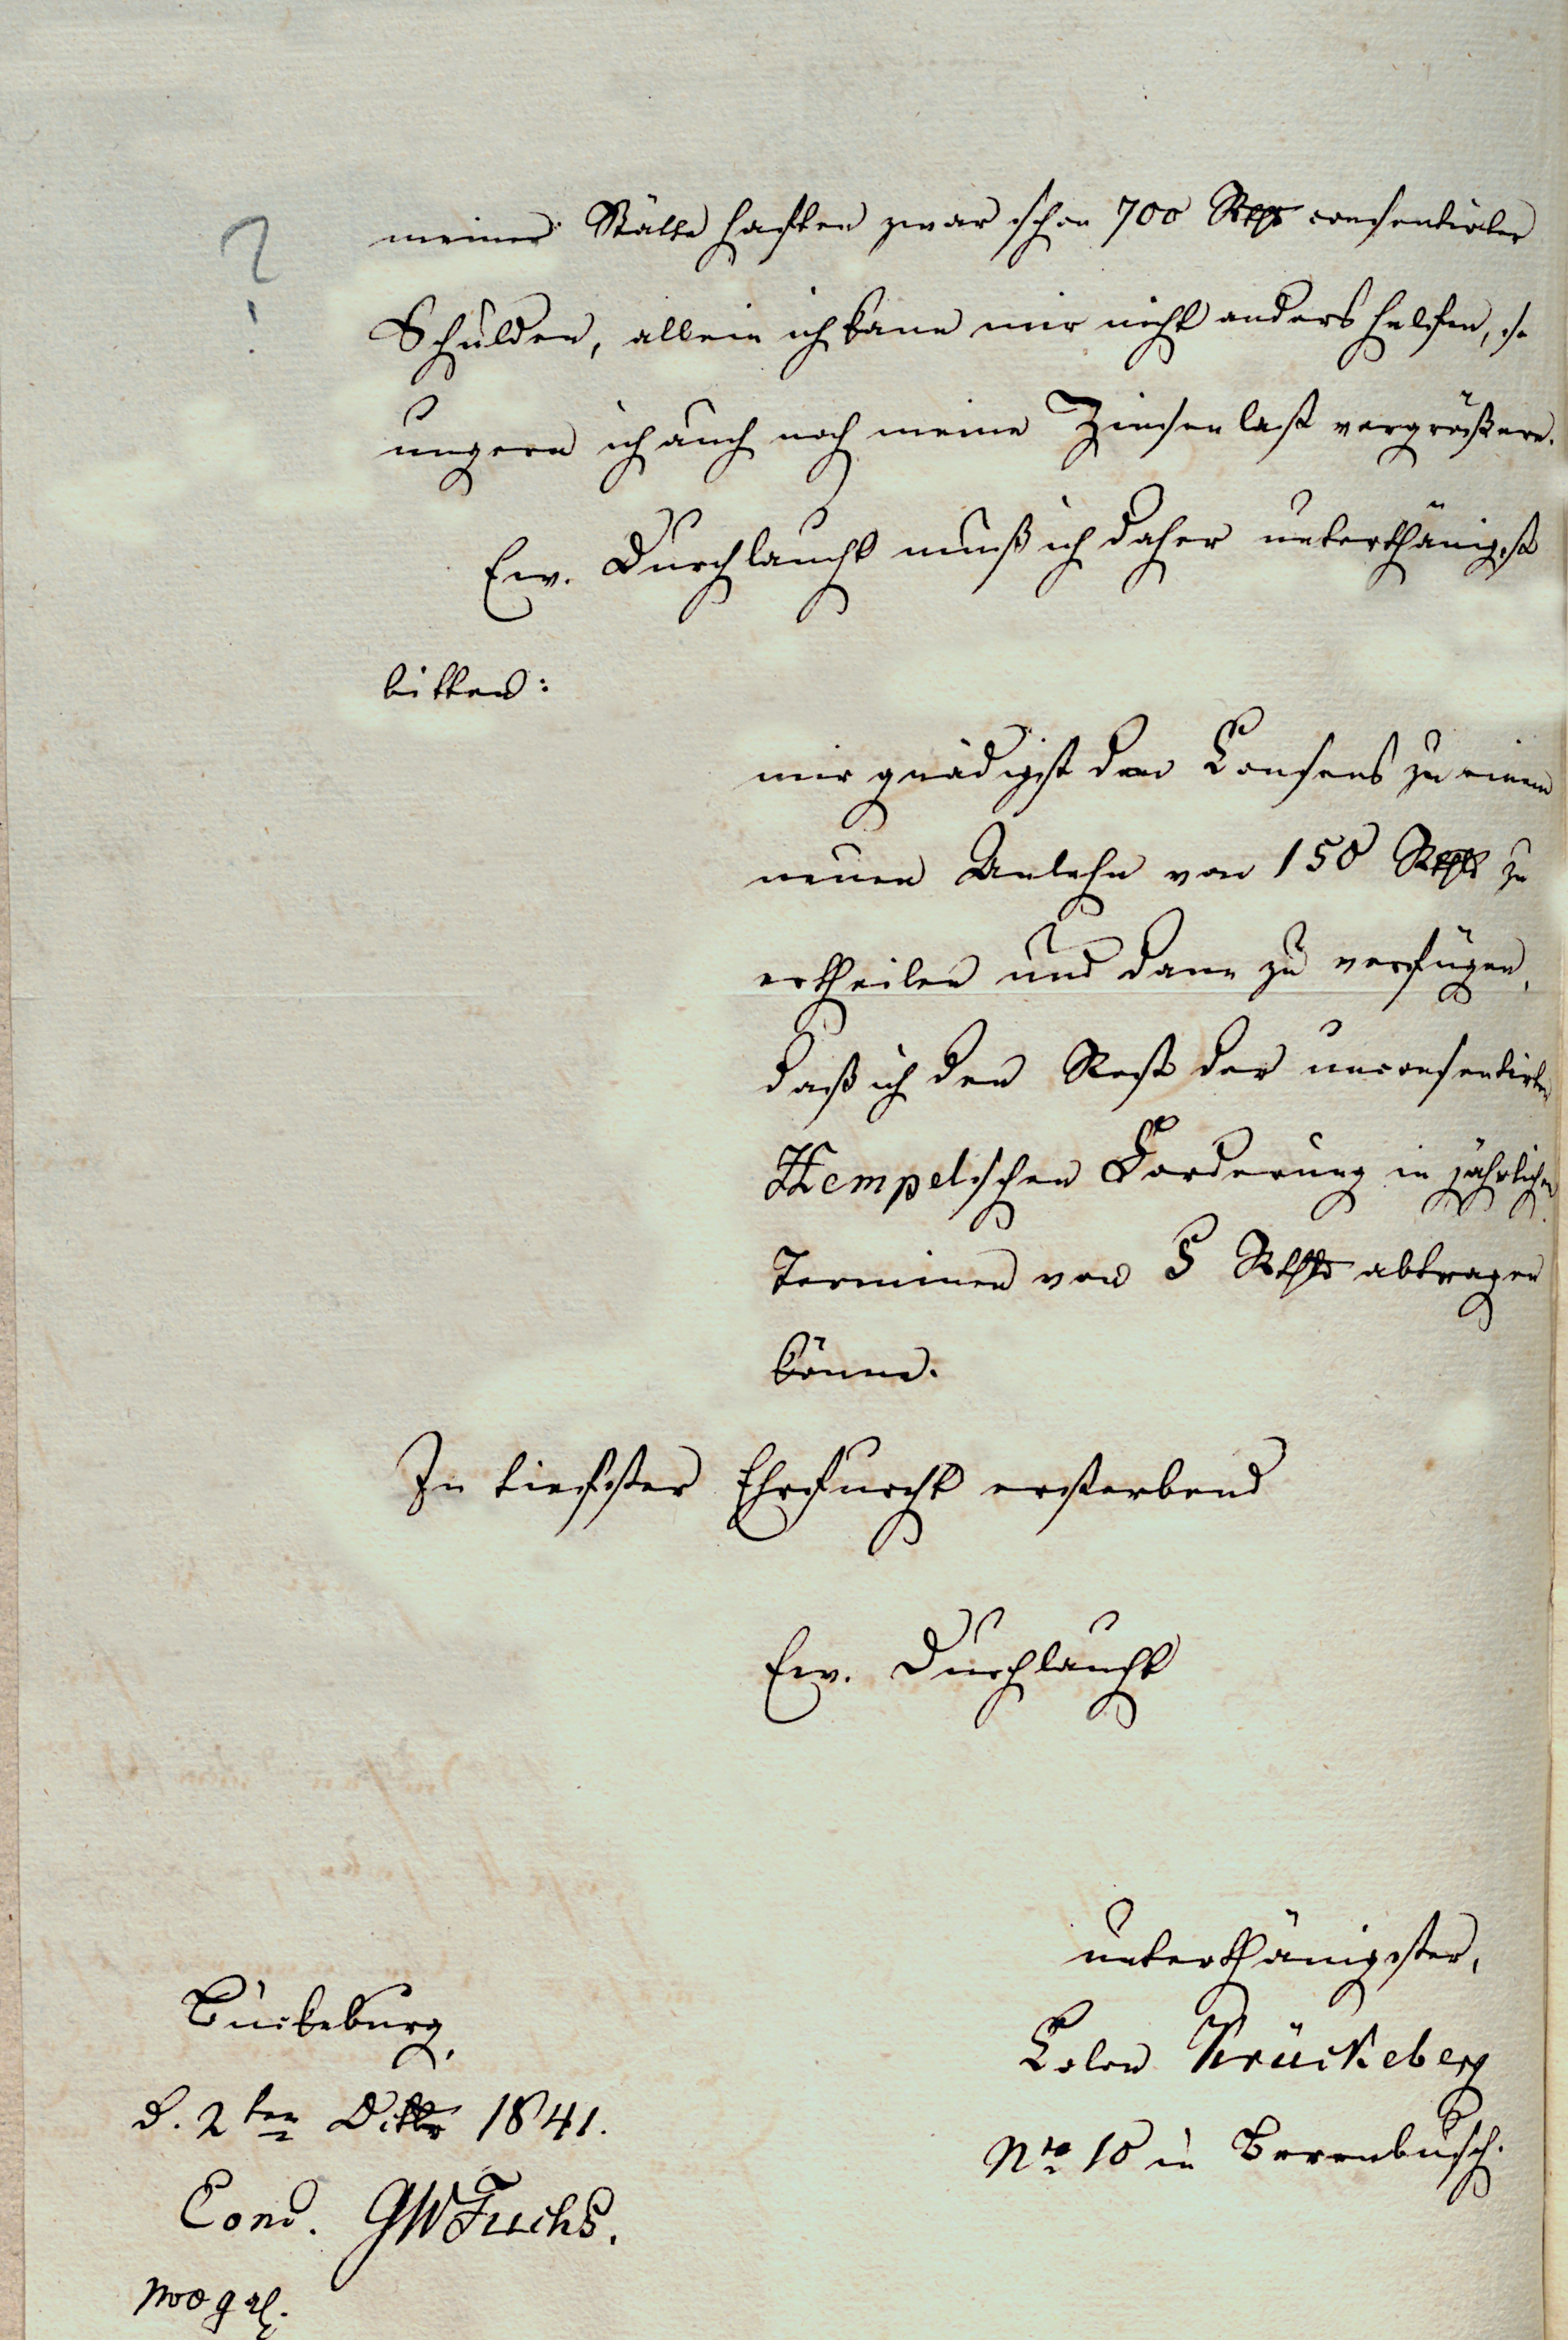 ?
meiner Stätte haften zwar schon 700 Rthlr consentirter
Schulden, allein ich kann mir nicht anders helfen, so
ungern ich auch noch meine Zinsenlast vergrößere.
Ew. Durchlaucht muß ich daher unterthänigst
bitten:
mir gnädigst den Consens zu einem
neuen Anlehn von 150 Rthlr zu
ertheilen und dann zu verfügen,
daß ich den Rest der unconsentirten
Hempelschen Forderung in jährlichen
Terminen von 5 Rthlr abtragen
könne.
In tiefster Ehrfurcht ersterbend
Ew. Durchlaucht
unterthänigster,
Colon Krückeberg
Nro 10 in Berenbusch.
Bückeburg,
d. 2ten 1841.
Conc. GWFuchs.